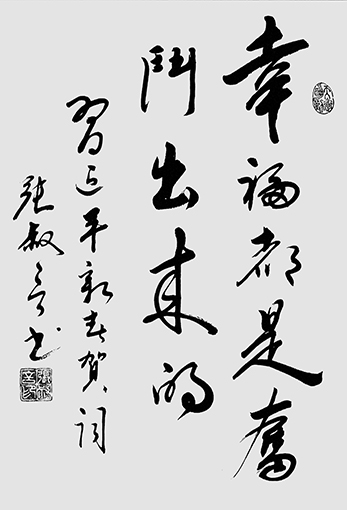 幸福都是奮
鬥出来的
習近平新春賀詞
張叔言书